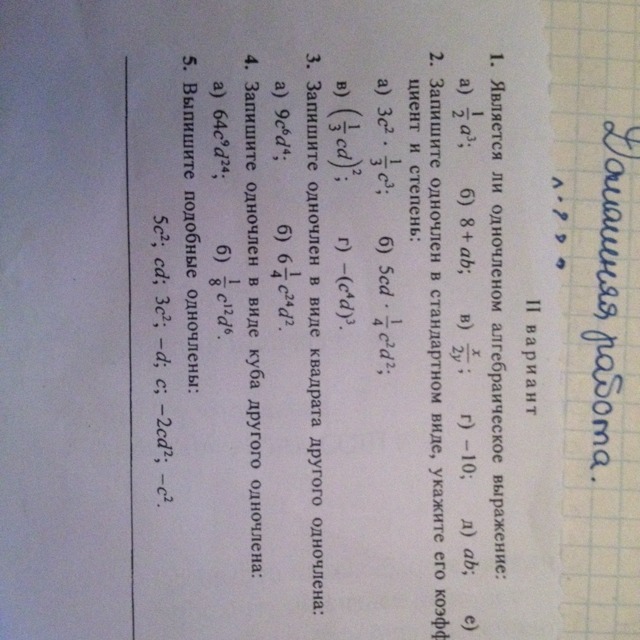 Домашняя работа.
II вариант
1. Является ли одночленом алгебраическое выражение:
а) 1/2 a³; б) 8 + ab; в) x/2y; г) −10; д) ab; е)
2. Запишите одночлен в стандартном виде, укажите его коэфф
циент и степень:
а) 3c² · 1/3 c³; б) 5cd · 1/4 c²d²;
в) (1/3 cd)²; г) −(c⁴d)³.
3. Запишите одночлен в виде квадрата другого одночлена:
а) 9c⁶d⁴; б) 6 1/4 c²⁴d².
4. Запишите одночлен в виде куба другого одночлена:
а) 64c⁹d²⁴; б) 1/8 c¹²d⁶.
5. Выпишите подобные одночлены:
5c²; cd; 3c²; −d; c; −2cd²; −c².